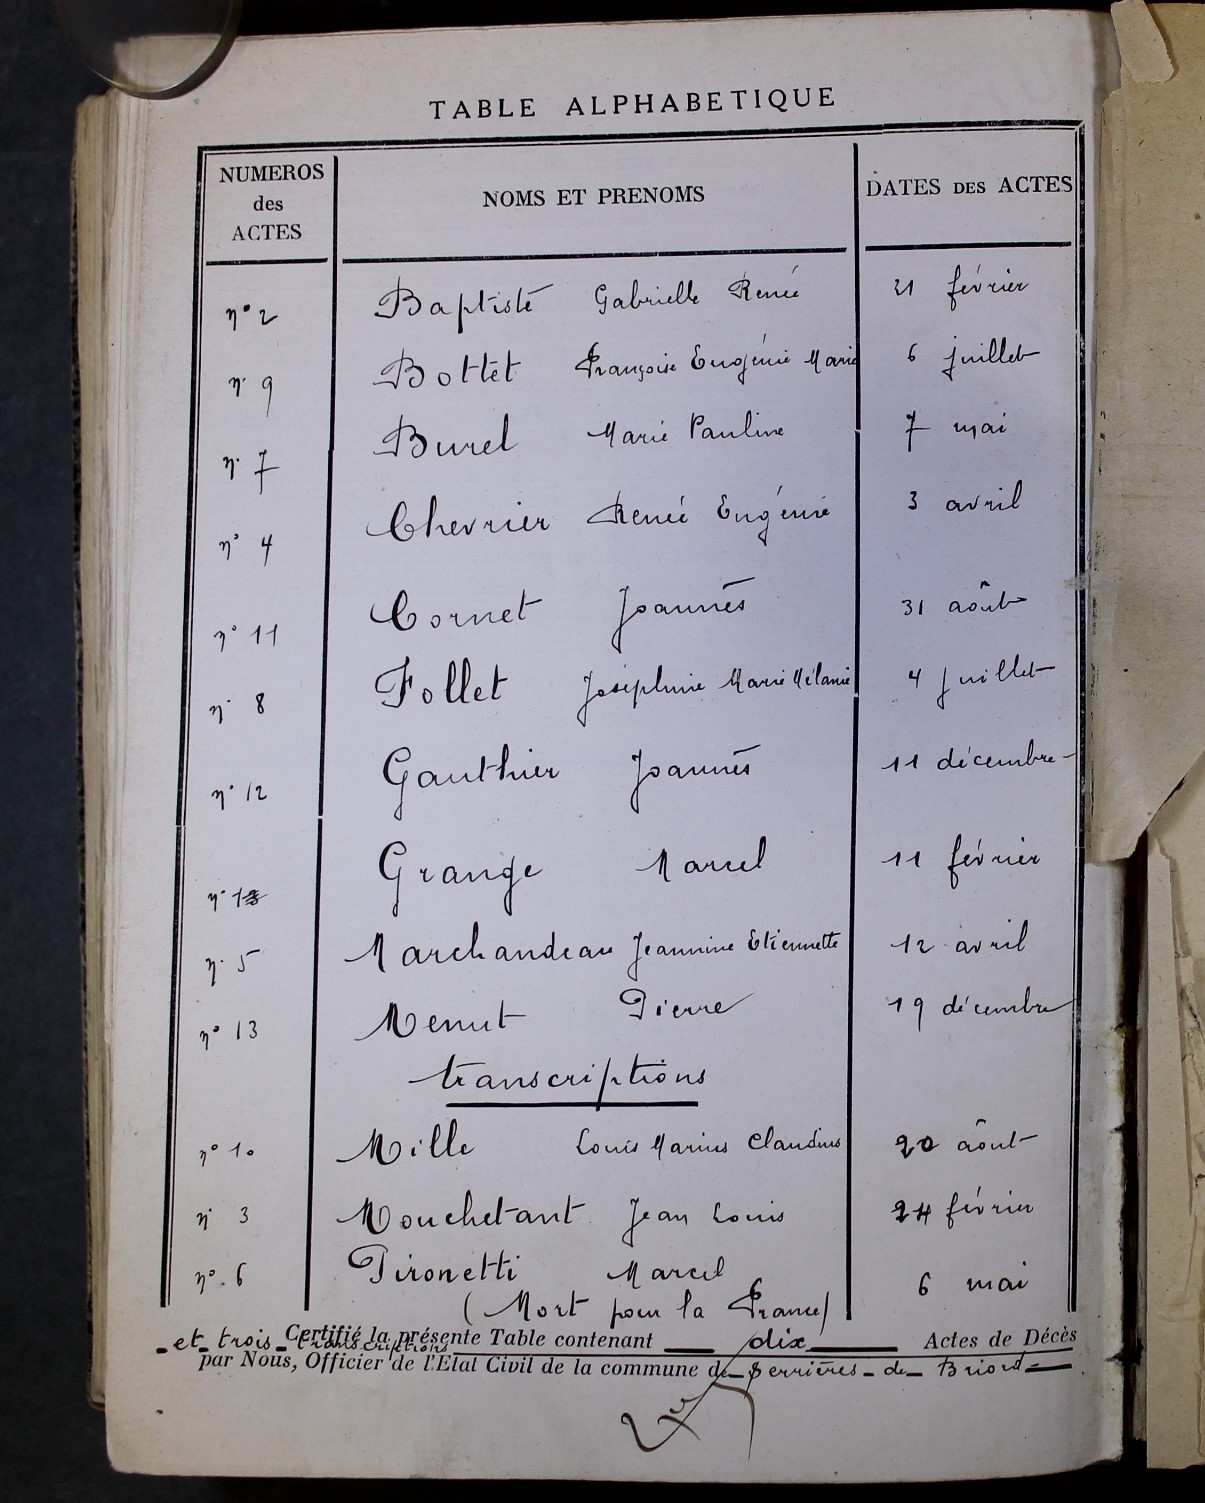 TABLE ALPHABETIQUE
NUMEROS des ACTES NOMS ET PRENOMS DATES DES ACTES
n° 2 Baptiste Gabrielle Renée 21 février
n° 9 Bottet Françoise Eugénie Marie 6 juillet
n° 7 Burel Marie Pauline 7 mai
n° 4 Chevrier Renée Eugénie 3 avril
n° 11 Cornet Joannès 31 aôut
n° 8 Follet Joséphine Marie Mélanie 4 juillet
n° 12 Gauthier Joannès 11 décembre
n° 1 Grange Marcel 11 février
n° 5 Marchandeau Jeannine Etiennette 12 avril
n° 13 Menut Pierre 19 décembre
transcriptions
n° 10 Mille Louis Marius Claudius 20 aôut
n° 3 Mouchetant Jean Louis 24 février
n° 6 Pironetti Marcel 6 mai
(Mort pour la France)
Certifié la présente Table contenant dix Actes de Décès
et trois transcriptions
par Nous, Officier de l'Etat Civil de la commune de Serrières de Briord